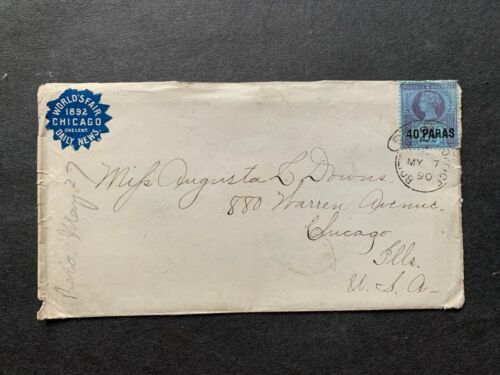 WORLD'S FAIR
1892
CHICAGO
ONE CENT
DAILY NEWS.
40 PARAS
MY 7
90
Miss Augusta L Downs
880 Warren Avenue
Chicago
Ills.
U.S.A
Rec'd May 27